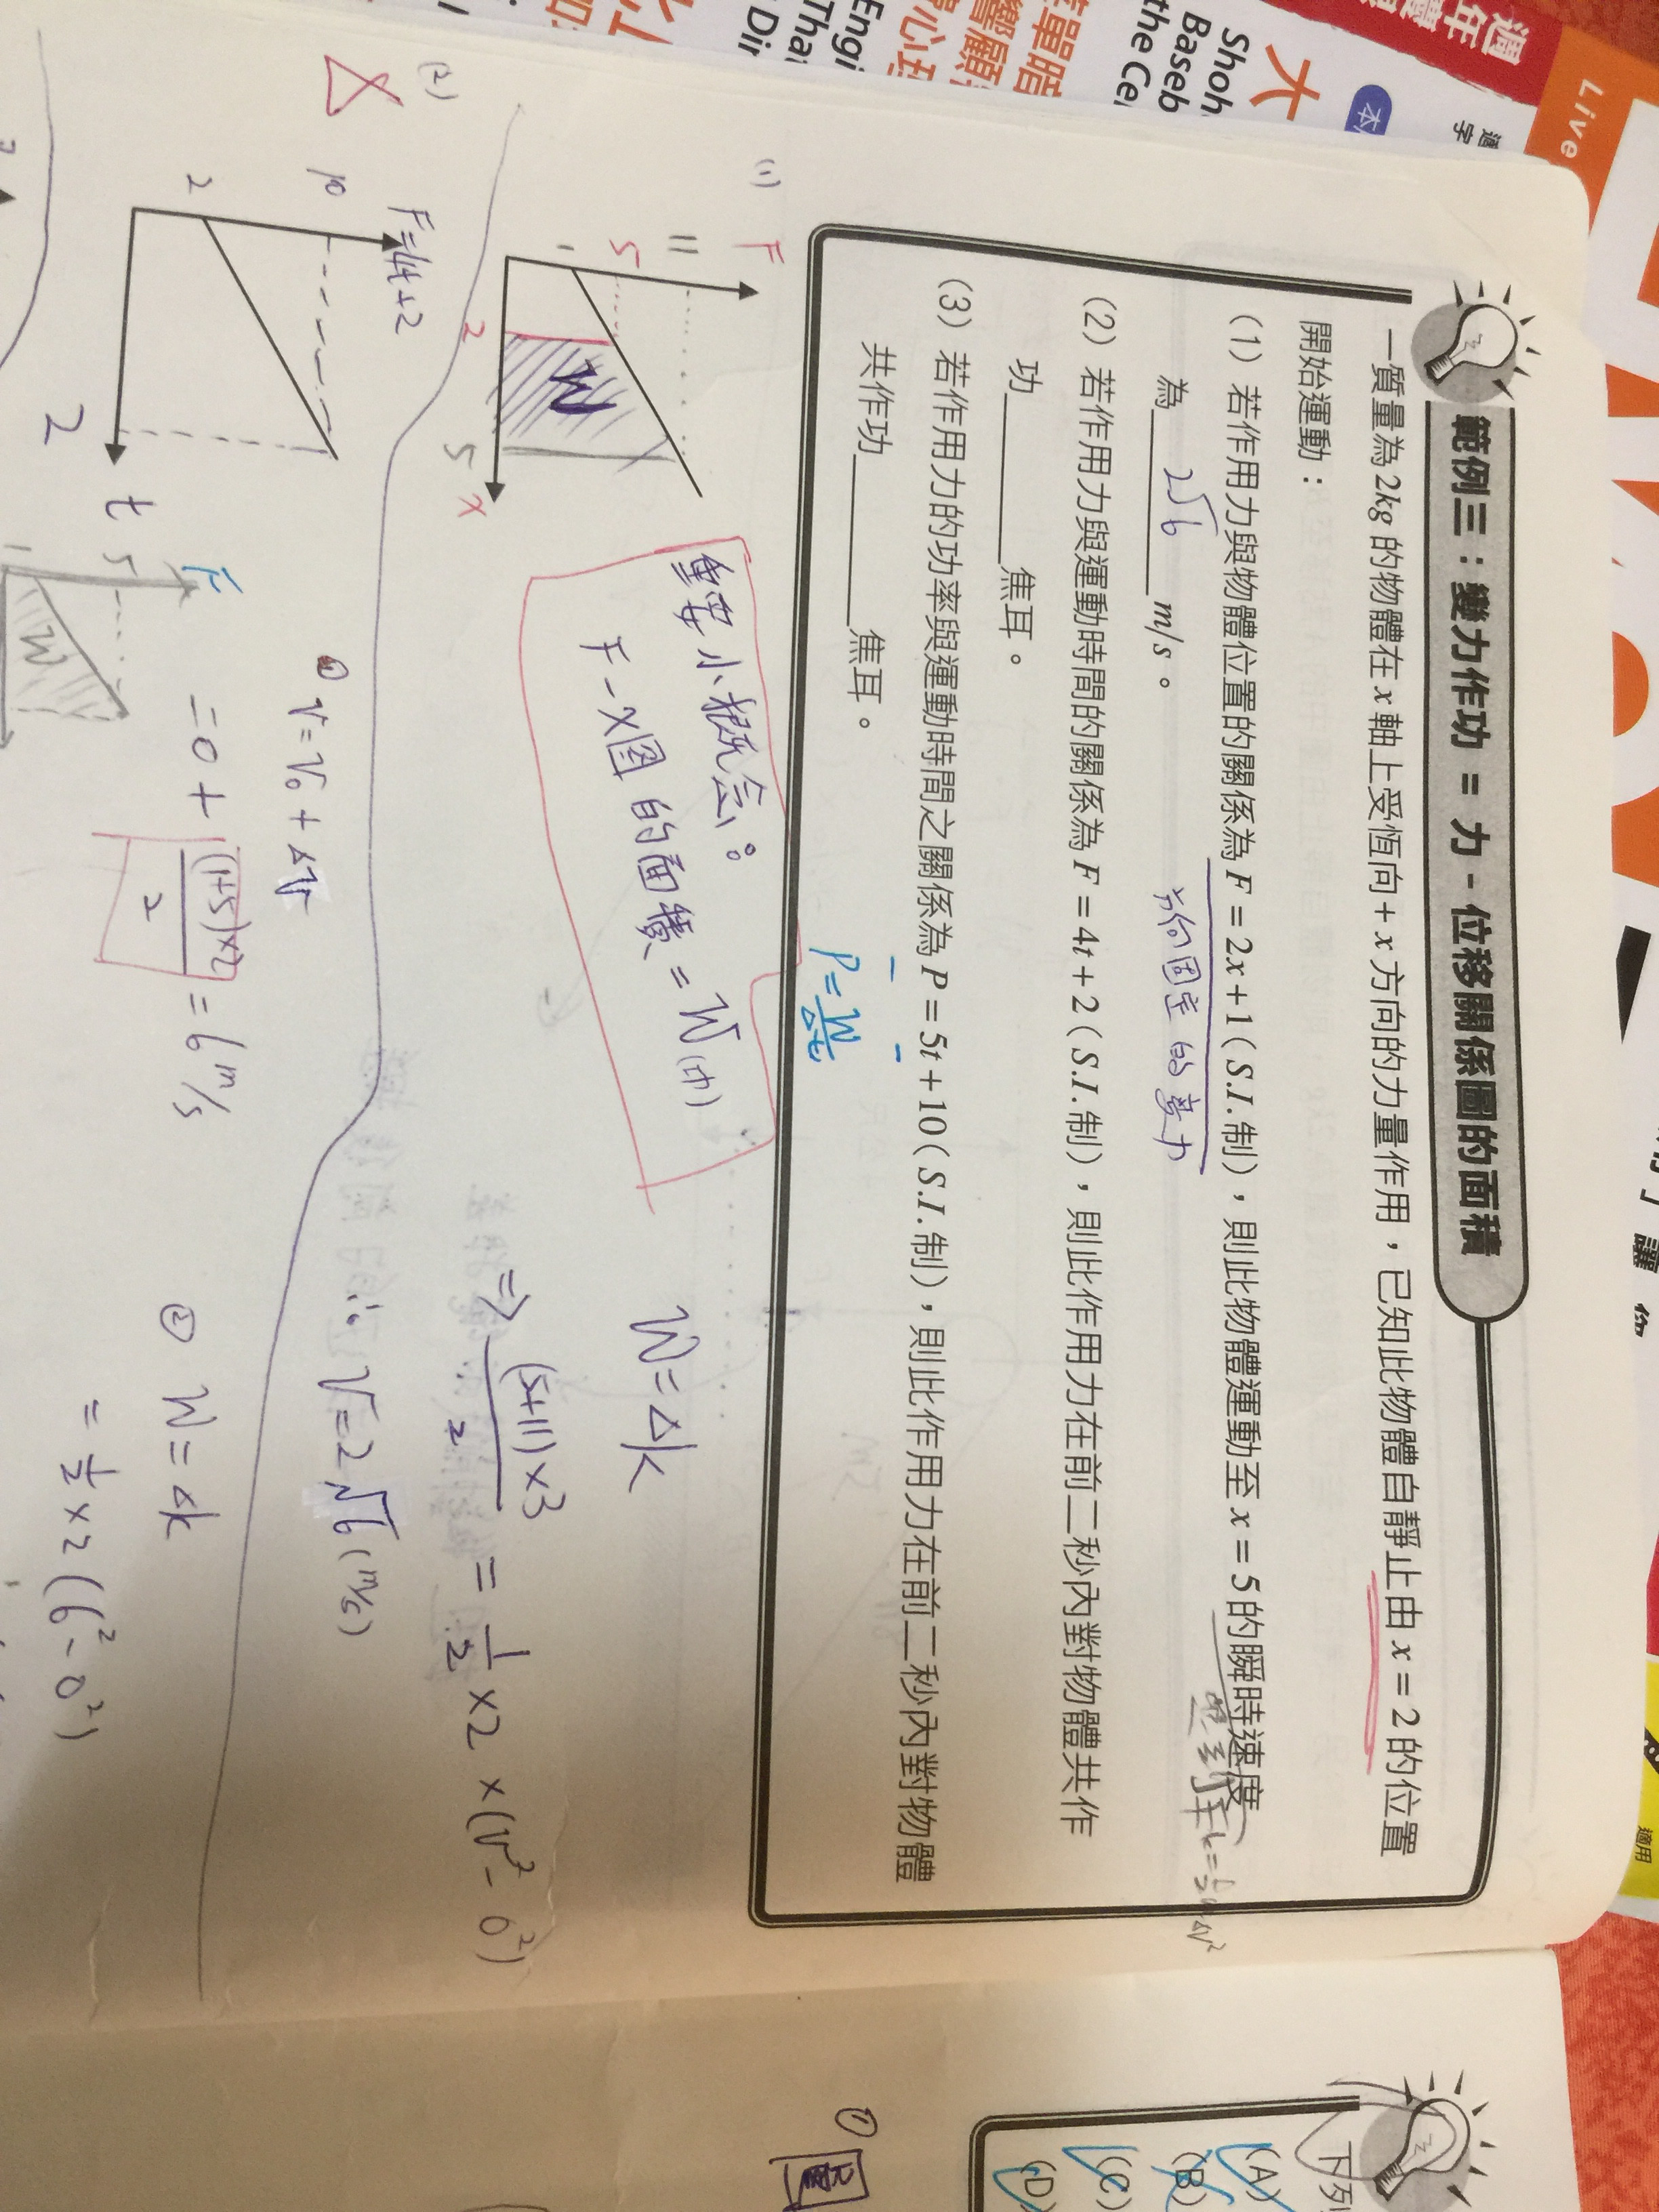 範例三：變力作功 = 力 - 位移關係圖的面積
一質量為 2kg 的物體在 x 軸上受恆向 + x 方向的力量作用，已知此物體自靜止由 x = 2 的位置
開始運動：
(1) 若作用力與物體位置的關係為 F = 2x + 1 ( S.I. 制 )，則此物體運動至 x = 5 的瞬時速度
為 2√6 m/s。
(2) 若作用力與運動時間的關係為 F = 4t + 2 ( S.I. 制 )，則此作用力在前二秒內對物體共作
功______焦耳。
(3) 若作用力的功率與運動時間之關係為 P = 5t + 10 ( S.I. 制 )，則此作用力在前二秒內對物體
共作功______焦耳。
P = W/Δt
(1)
F
11
5
1
2
5
x
W
重要小概念：
F - X图 的面積 = W(功)
W = Δk
⇒ (5+11)×3/2 = 1/2 ×2 ×(V² - 0²)
∴ V = 2√6 (m/s)
(2)
F=4t+2
10
2
2
t
① V = V₀ + ΔV
= 0 + (1+5)×2/2 = 6 m/s
② W = Δk
= 1/2 ×2 (6² - 0²)
F
5
1
W
Live
大
本
Shoh
Baseb
the Ce
Engi
Tha
Dir
適用
①
下列
(A)
(B)
(C)
(D)